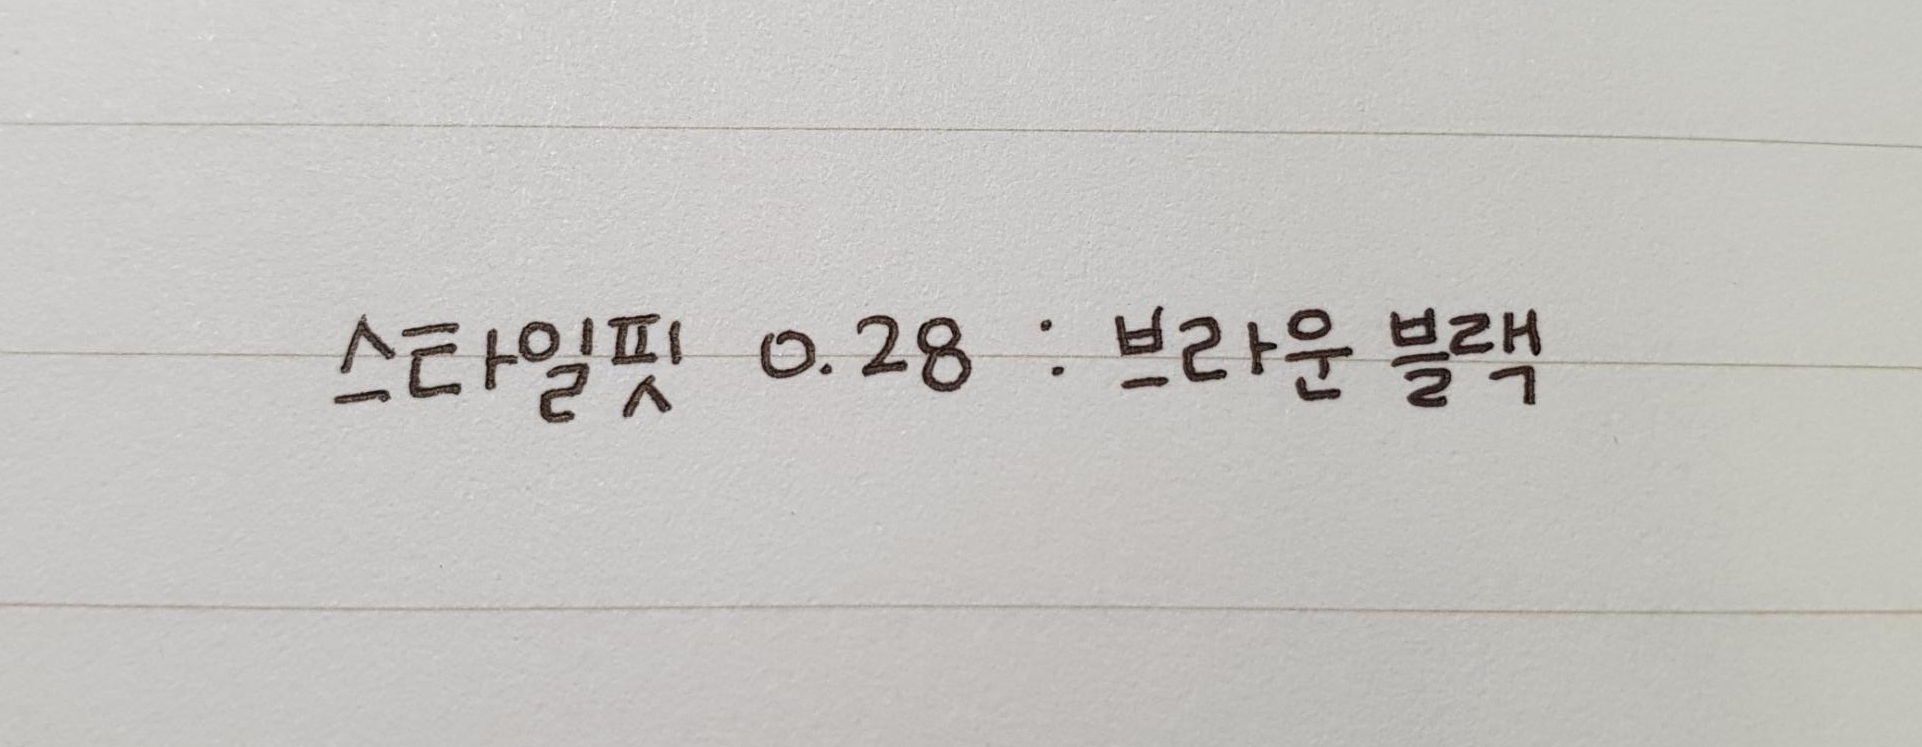 스타일핏 0.28 : 브라운 블랙